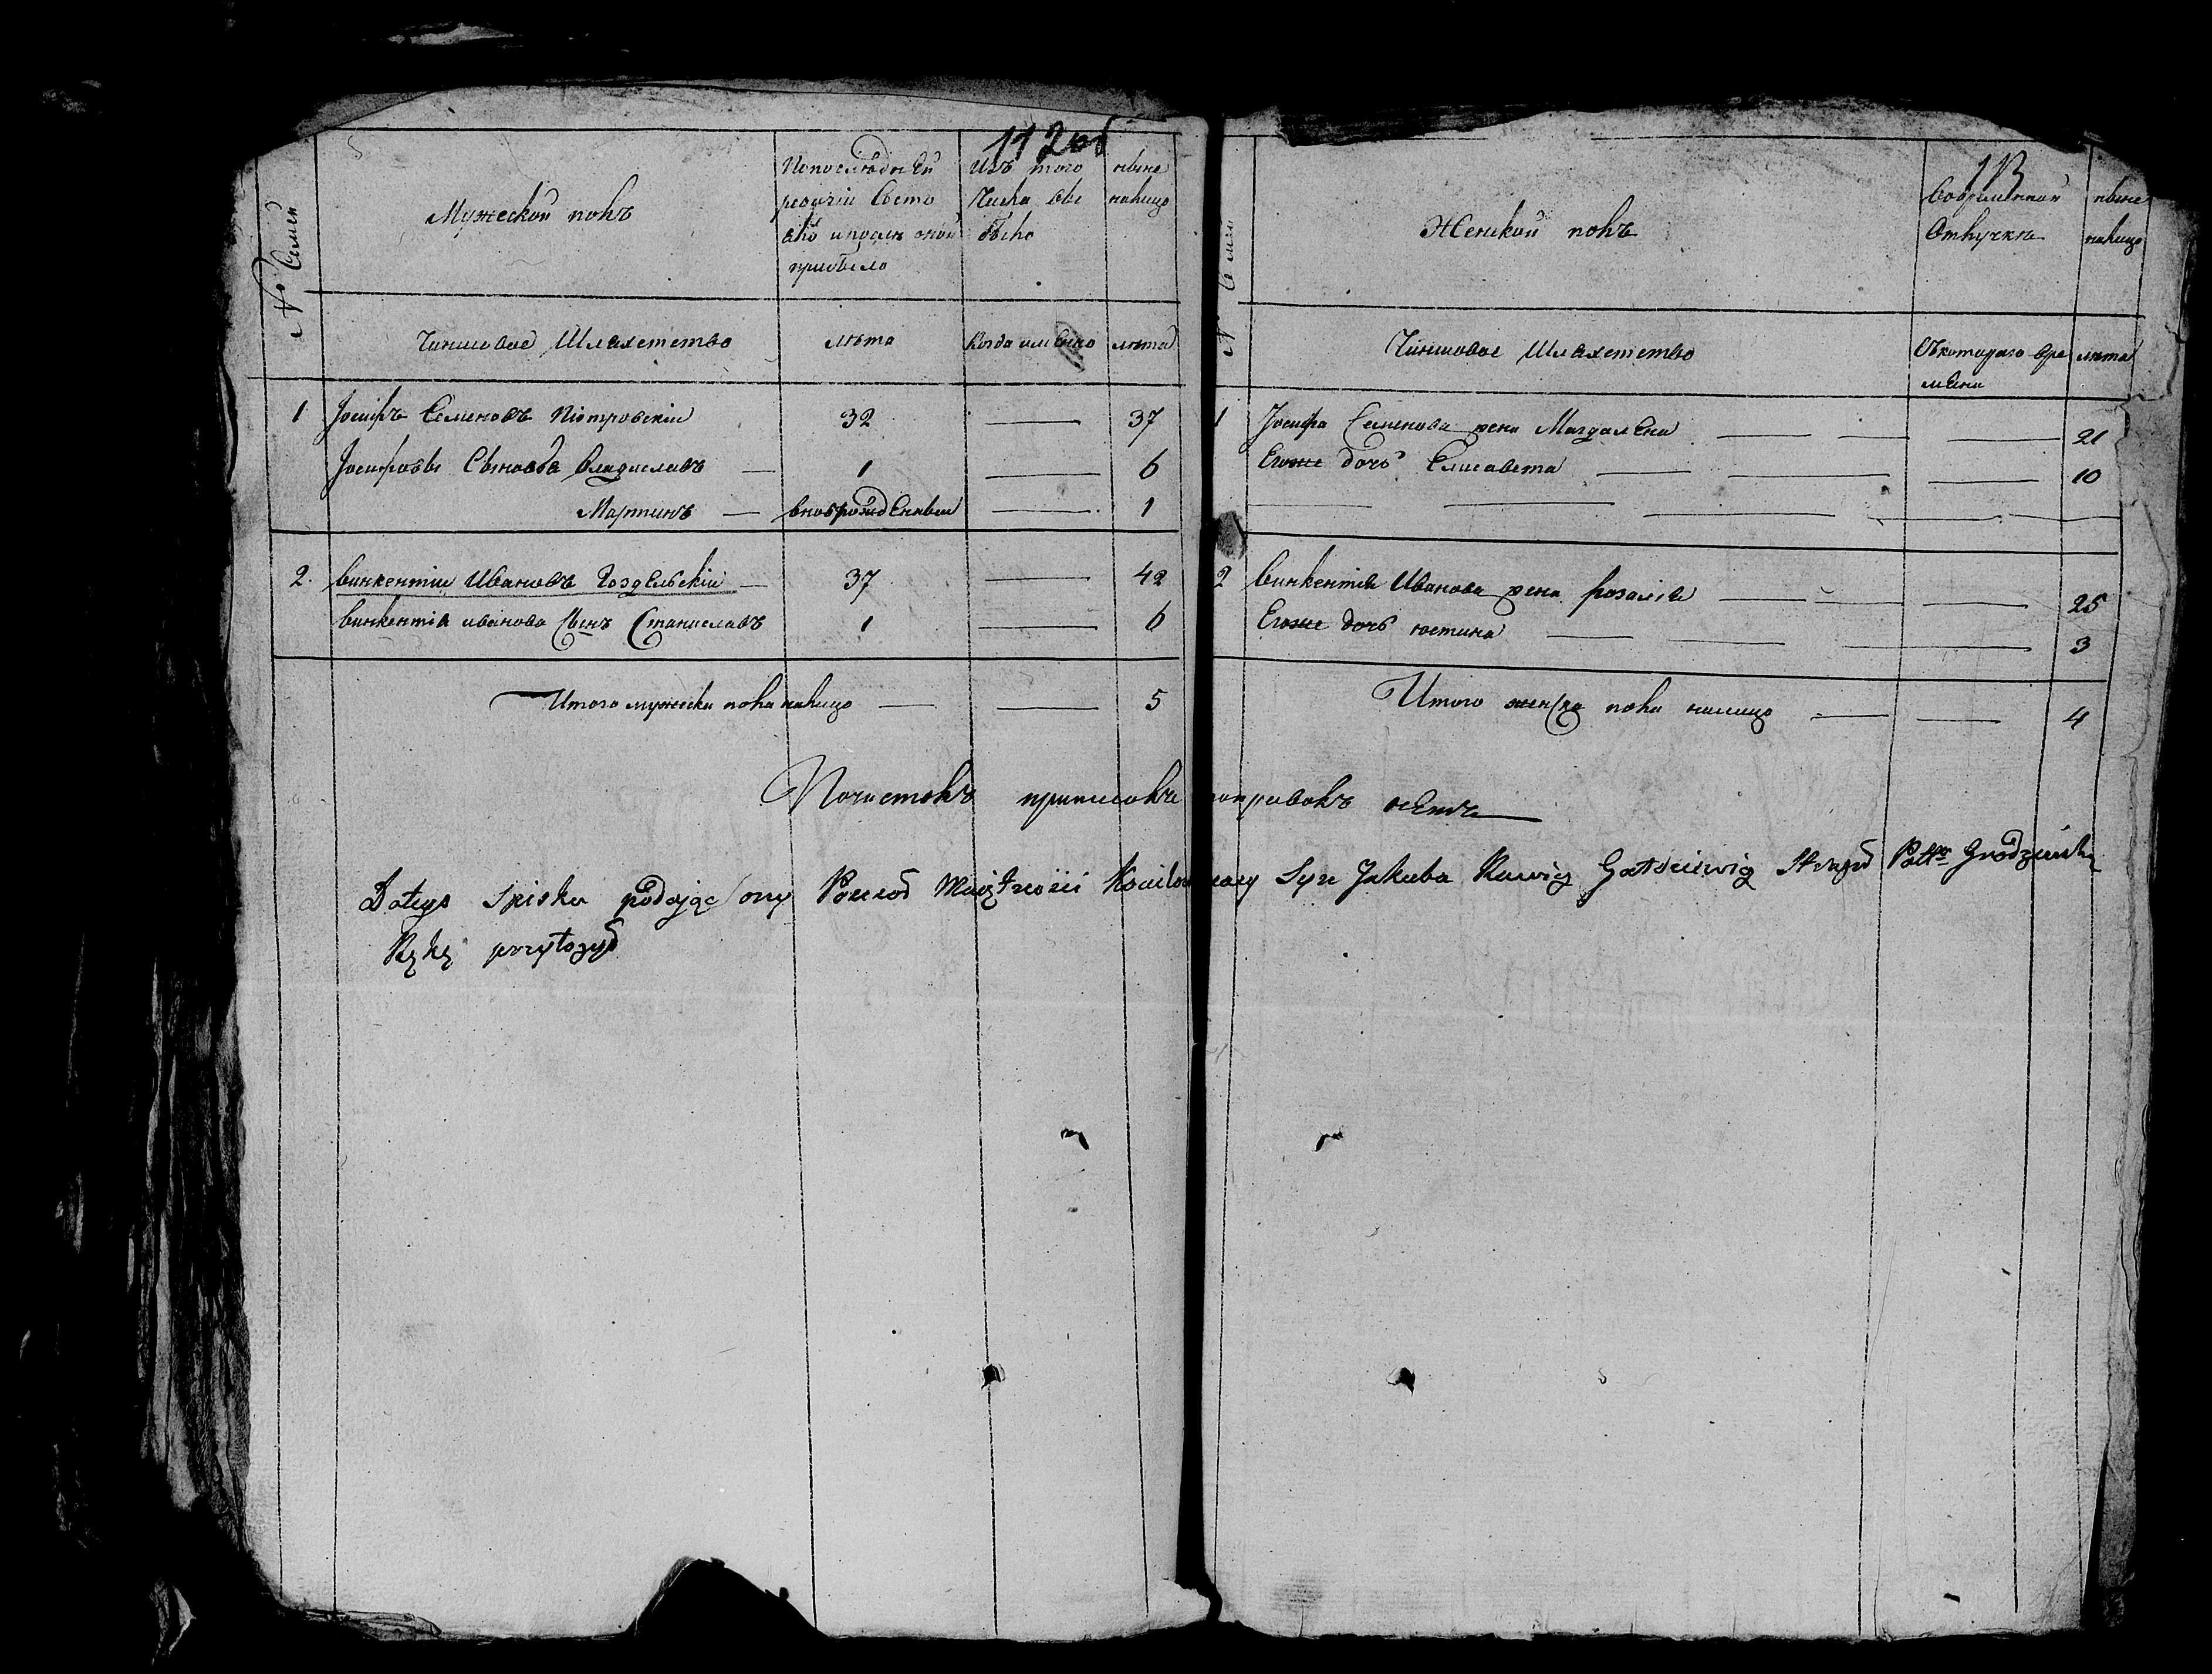 112об
№ Семьи
Мужеской полъ
Попоследней
ревизіи Состо
яло и после оной
прибыло
Изъ того
Числа Вы
было
ныне
налицо
Чиншовое Шляхетство
лета
Когда имянно
лета
1 Іосифъ Семеновъ Піотровскій 32 — 37
Іосифовы Сыновья Владиславъ — 1 — 6
Мартинъ — вноврожденный — 1
2. Винкентій Ивановъ Гоздельскій — 37 — 42
Винкентія иванова Сынъ Станиславъ 1 — 6
Итого мужеска пола налицо — — 5
113
№ Семьи
Женской полъ
Вовременной
Отлучке
ныне
налицо
Чиншовое Шляхетство
Съкотораго вре
мени
лета
1 Іосифа Семенова жена Магдалена — — — 21
Егоже дочь Елисавета — — — 10
2 Винкентія Иванова жена розалія — — — 25
Егоже дочь юстина — — — 3
Итого женска пола налицо — — 4
Почистокъ приписокъ поправокъ нетъ
Do tego Spisku podając ony Syn Jakuba
Rękę przyłożył